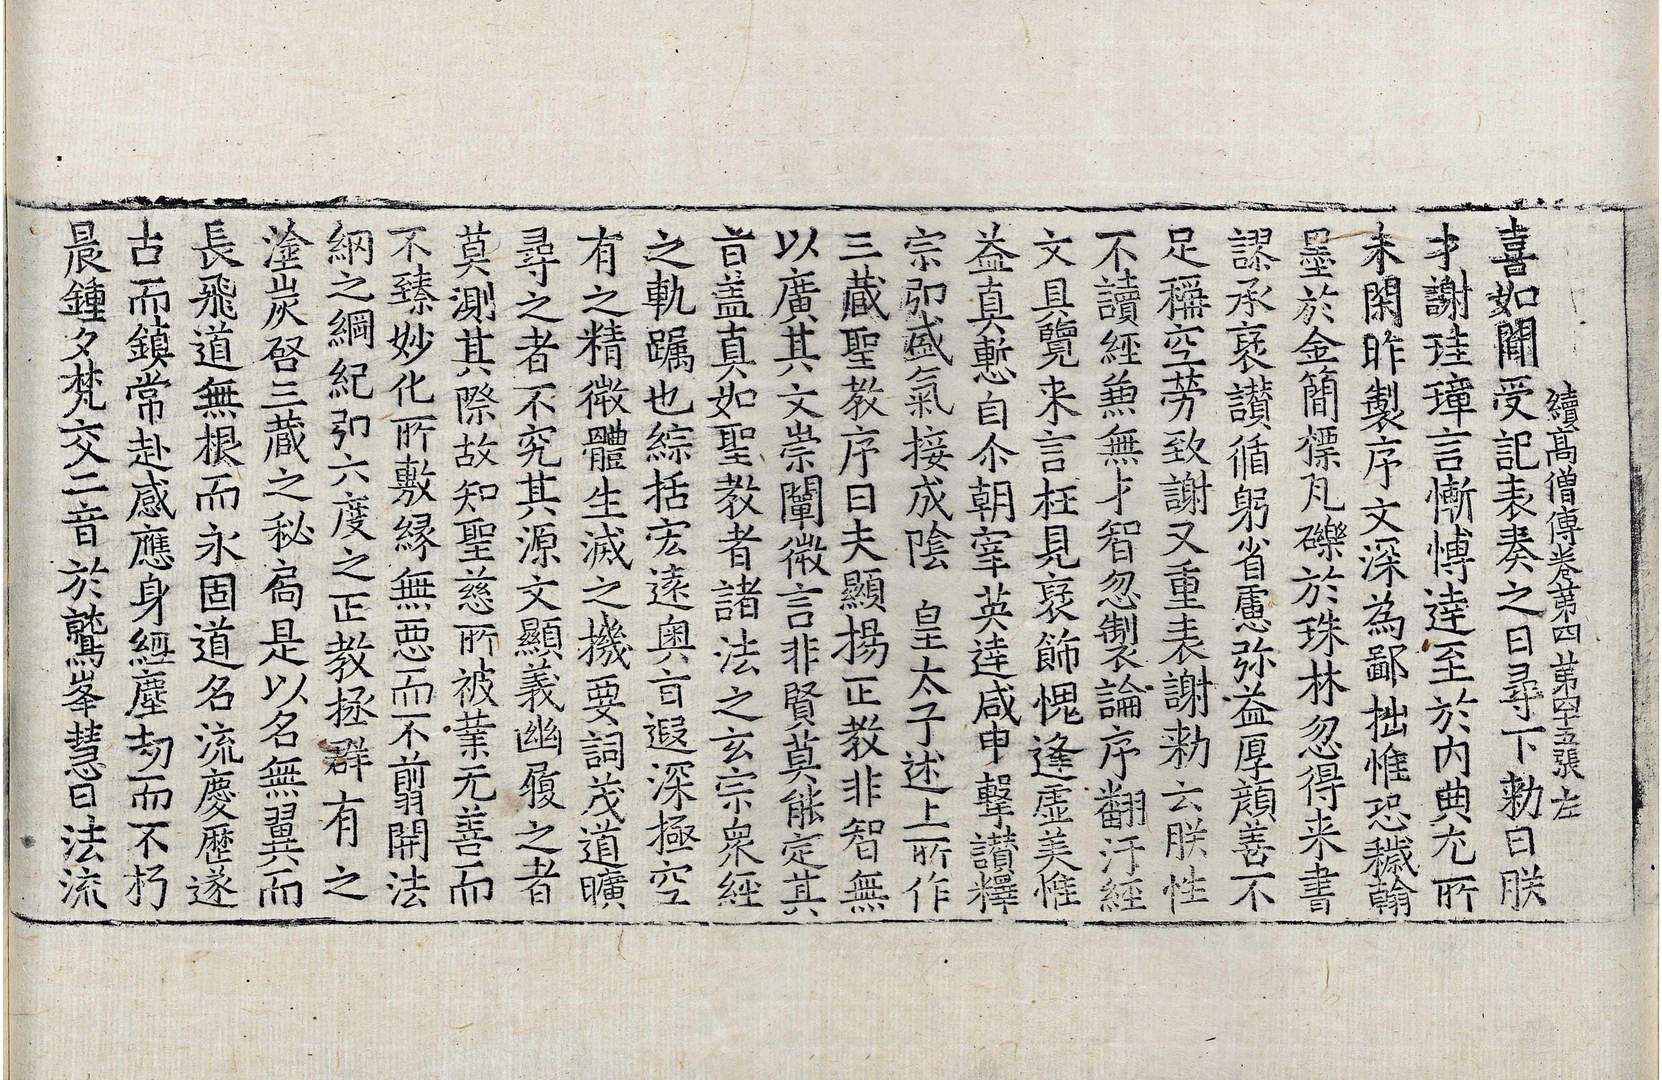 續高僧傳卷第四 第四十五張 左
喜如聞受記表奏之日尋下勑曰朕
才謝珪璋言慚博達至於內典尤所
未閑昨製序文深為鄙拙惟恐穢翰
墨於金簡標凡礫於珠林忽得来書
謬承褒讃循躬省慮弥益厚顔善不
足稱空勞致謝又重表謝勑云朕性
不讀經兼無才智忽製論序翻汙經
文具覽来言枉見褒飾愧逢虛美惟
益真慙自尒朝宰英達咸申擊讃釋
宗弘盛氣接成陰 皇太子述上所作
三蔵聖教序曰夫顯揚正教非智無
以廣其文崇闡微言非賢莫能定其
㫖盖真如聖教者諸法之玄宗衆經
之軌躅也綜括宏遠奥㫖遐深極空
有之精微體生滅之機要詞茂道曠
尋之者不究其源文顯義幽履之者
莫測其際故知聖慈所被業无善而
不臻妙化所敷緣無惡而不翦開法
綱之綱紀弘六度之正教拯群有之
塗炭啓三蔵之秘扃是以名無翼而
長飛道無根而永固道名流慶歷遂
古而鎮常赴感應身經塵劫而不朽
晨鍾夕梵交二音於鷲峯慧日法流